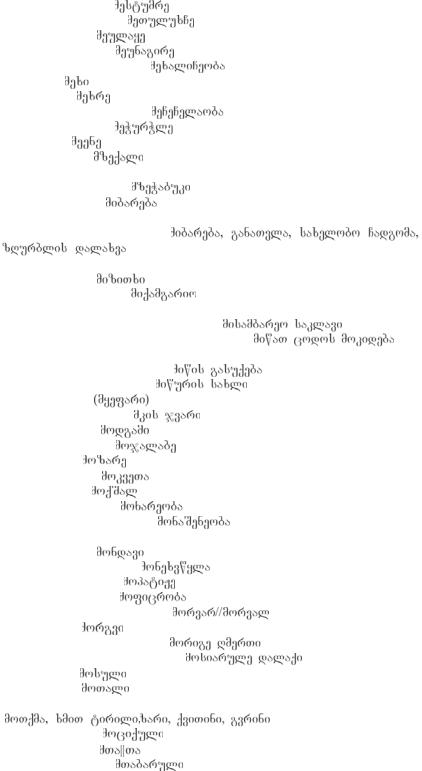 მესტუმრე
მეთულუხჩე
მეულაყე
მეუნაგირე
მეხალიჩეობა
მეხი
მეხრე
მეჩეჩელაობა
მეჭურჭლე
მეენე
მზექალი
მზეჭაბუკი
მიბარება
მიბარება, განათვლა, სახელობო ჩადგომა,
ზღურბლის დალახვა
მიზითხი
მიქამგარიო
მისამბარეო საკლავი
მიწათ ცოდოს მოკიდება
მიწის გასუქება
მიწურის სახლი
(მყეფარი)
მკის ჯვარი
მოდგამი
მოჯალაბე
მოზარე
მოკვეთა
მოქმალ
მოხარეობა
მონაშენეობა
მონდავი
მონეხვწყლა
მოპატიჟე
მოფიცრობა
მორვარ//მორვალ
მორგვი
მორიგე ღმერთი
მოსიარულე დალაქი
მოსული
მოთალი
მოთქმა, ხმით ტირილი,ზარი, ქვითინი, გვრინი
მოციქული
მთა||თა
მთაბარული